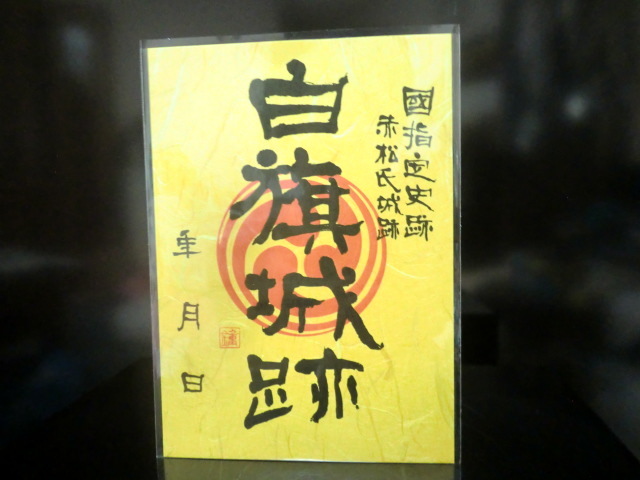 國指定史跡
赤松氏城跡
白旗城跡
年月日